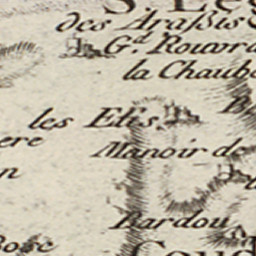 des Araſsis
G.d Rouvra
la Chaube
les Elis.
ere
Manoir de
n
Bardou
Bosc
Coud